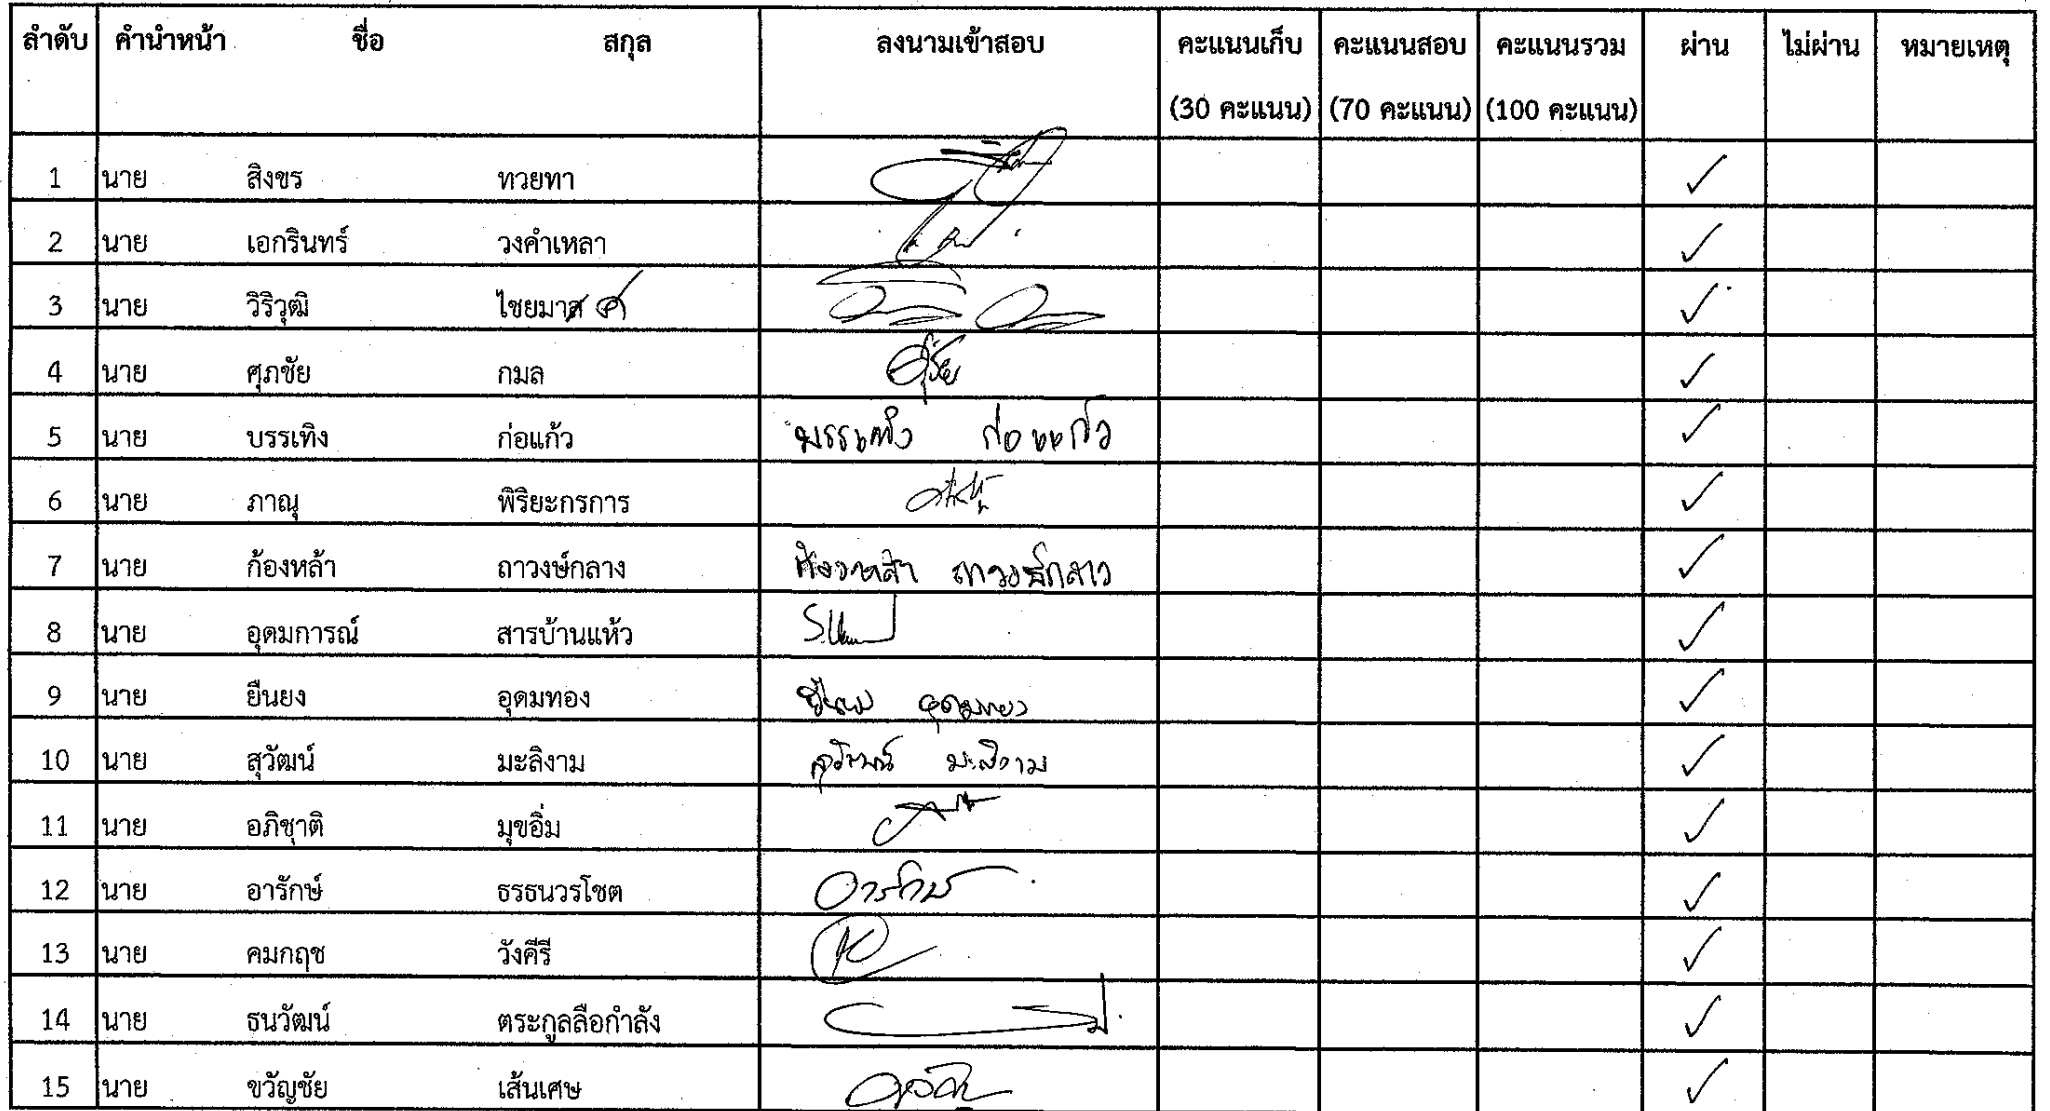 ลำดับ คำนำหน้า ชื่อ สกุล ลงนามเข้าสอบ คะแนนเก็บ คะแนนสอบ คะแนนรวม ผ่าน ไม่ผ่าน หมายเหตุ
(30 คะแนน) (70 คะแนน) (100 คะแนน)
1 นาย สิงขร ทวยทา ✓
2 นาย เอกรินทร์ วงคำเหลา ✓
3 นาย วิริวุฒิ ไชยมาศ ✓
4 นาย ศุภชัย กมล ✓
5 นาย บรรเทิง ก่อแก้ว บรรเทิง ก่อแก้ว ✓
6 นาย ภาณุ พิริยะกรการ ✓
7 นาย ก้องหล้า ถาวงษ์กลาง ก้องหล้า ถาวงษ์กลาง ✓
8 นาย อุดมการณ์ สารบ้านแห้ว ✓
9 นาย ยืนยง อุดมทอง ยืนยง อุดมทอง ✓
10 นาย สุวัฒน์ มะลิงาม สุวัฒน์ มะลิงาม ✓
11 นาย อภิชาติ มุขอิ่ม ✓
12 นาย อารักษ์ ธรธนวรโชต อารักษ์ ✓
13 นาย คมกฤช วังคีรี ✓
14 นาย ธนวัฒน์ ตระกูลลือกำลัง ✓
15 นาย ขวัญชัย เส้นเศษ ✓